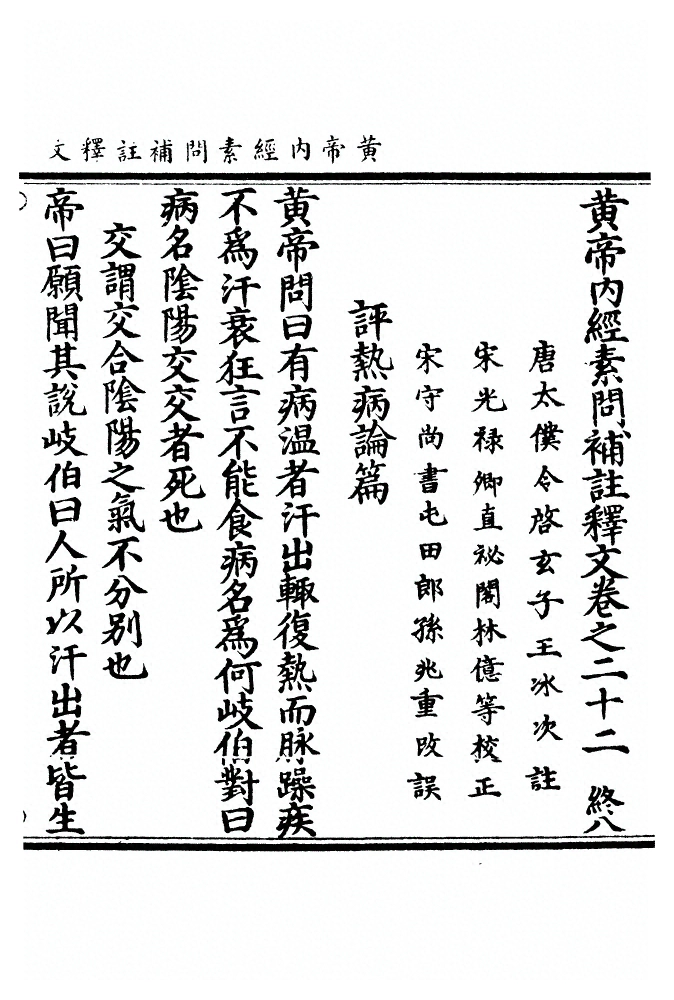 黄帝內經素問補註釋文
黄帝內經素問補註釋文卷之二十二　終八
唐太僕令啓玄子王冰次註
宋光禄卿直祕閣林億等校正
宋守尚書屯田郎孫兆重改誤
評熱病論篇
黄帝問曰有病温者汗出輙復熱而脉躁疾
不爲汗衰狂言不能食病名爲何岐伯對曰
病名陰陽交交者死也
交謂交合陰陽之氣不分别也
帝曰願聞其說岐伯曰人所以汗出者皆生